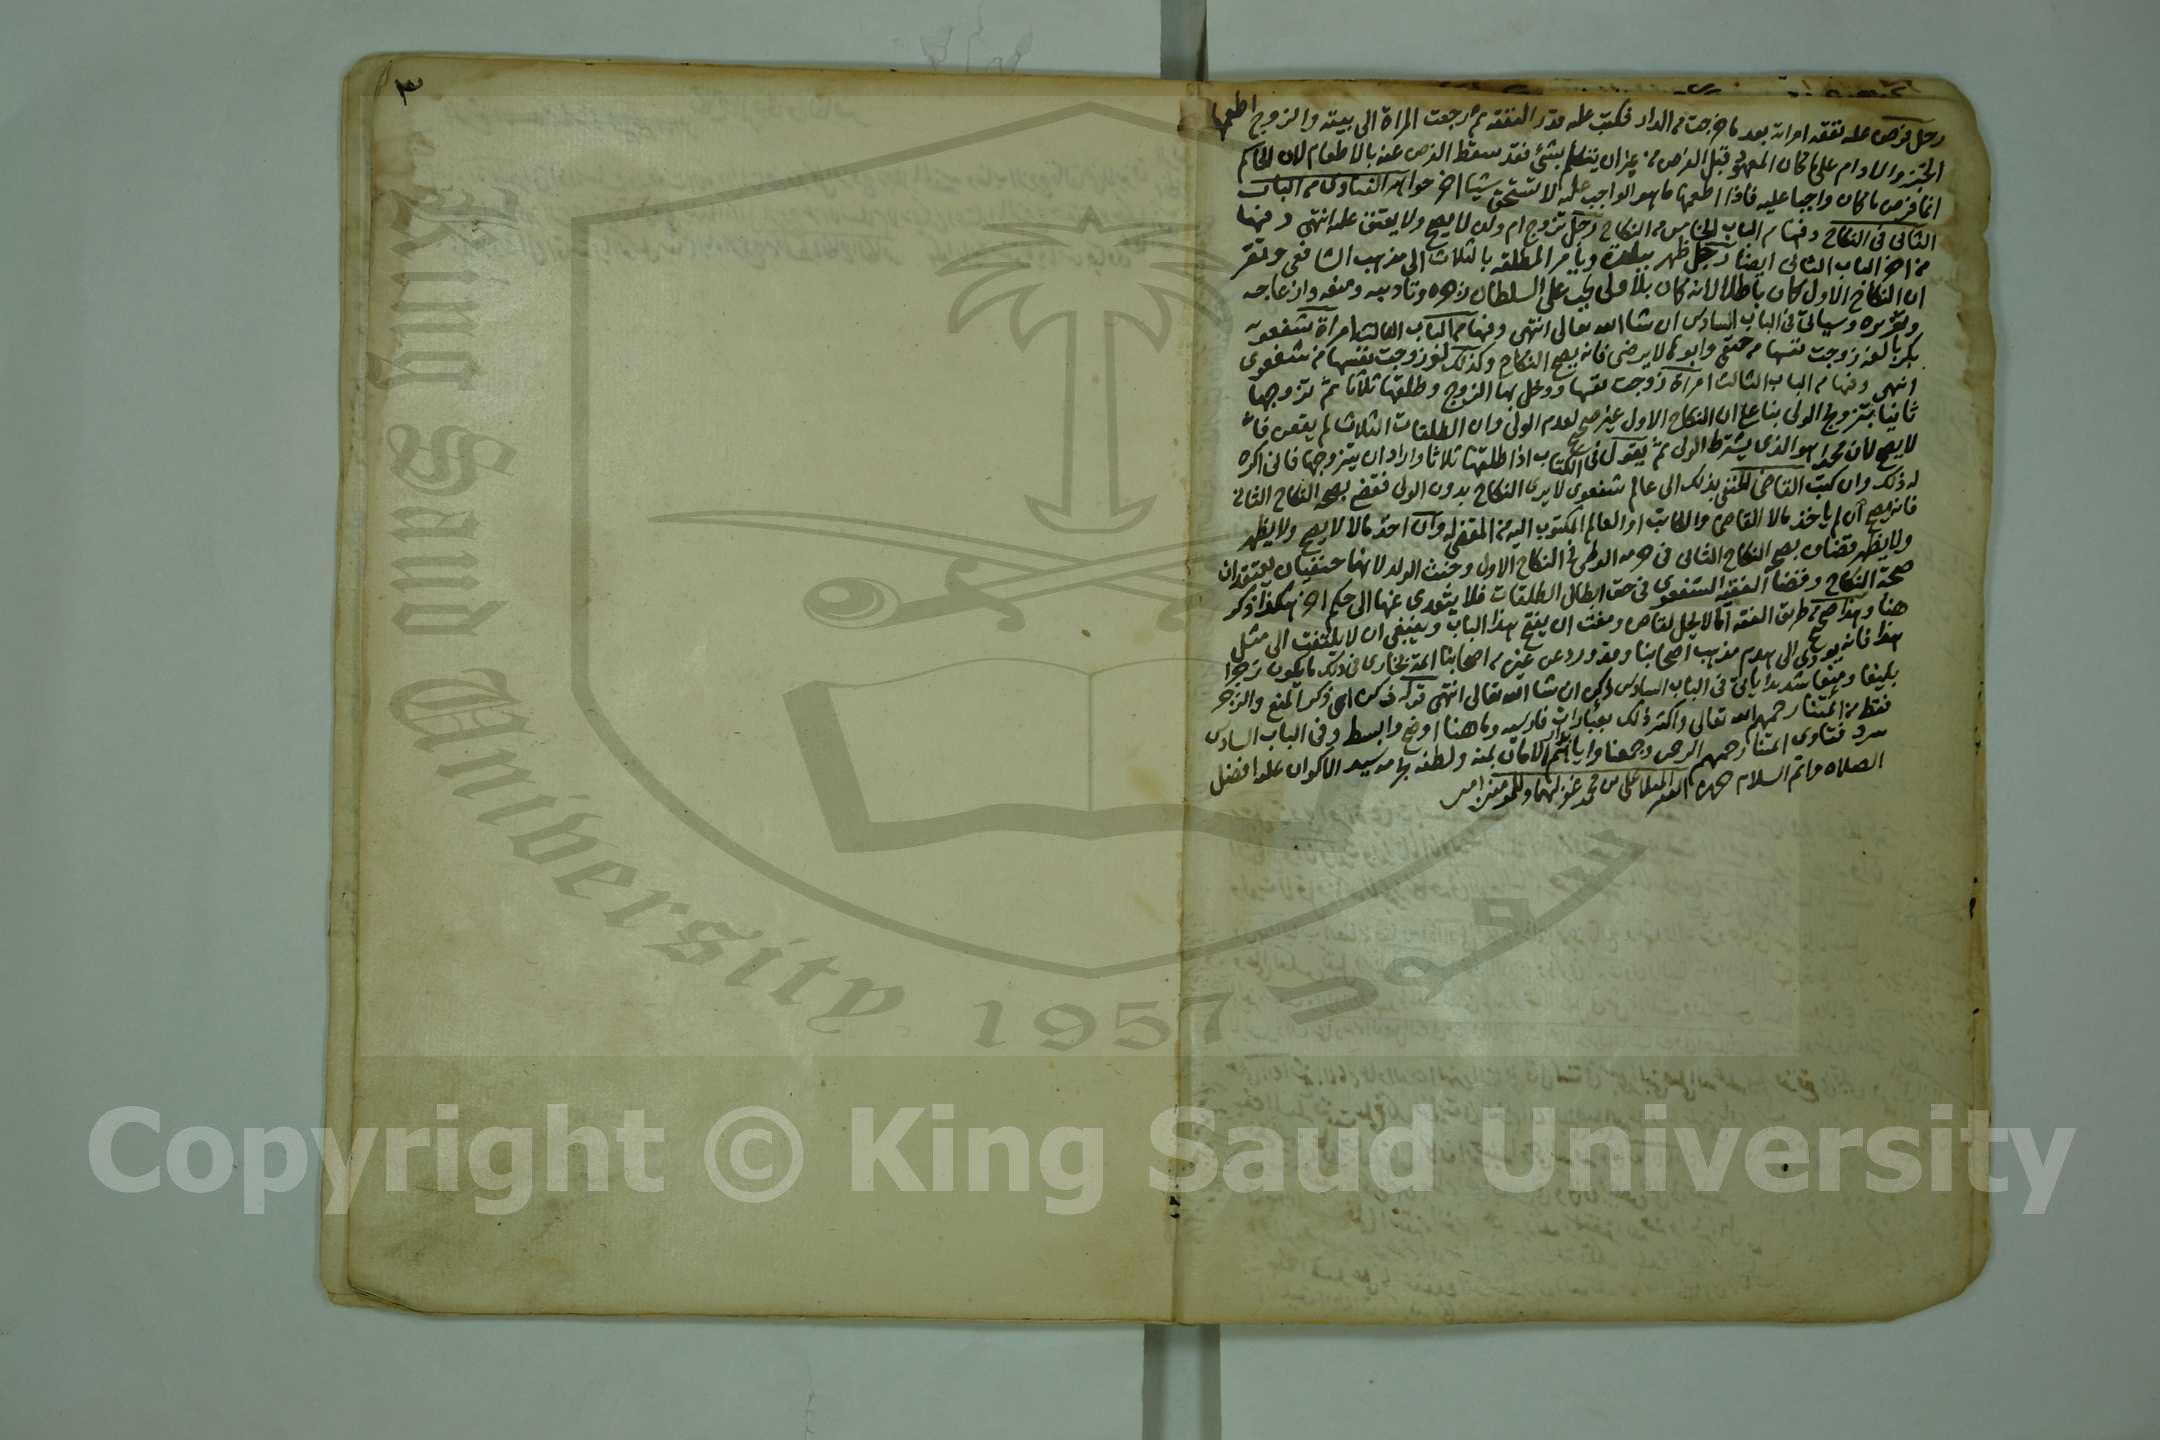 رجل فرض عليه نفقة امراته بعد ما خرجت من الدار فكتب عليه قدر النفقة ثم رجعت المراة الى بيته والزوج اطعمها
الخبز والادام على ما كان المعهود قبل الفرض من غير ان يتكلم بشئ فقد سقط الفرض عنه بالاطعام لان الحاكم
انما فرض ما كان واجبا عليه فاذا اطعمها ما هو الواجب عليه لا تستحق شيئا اخر جواهر الفتاوى من الباب
الثانى فى النكاح وفيها من الباب الخامس من النكاح رجل تزوج ام ولده لا يصح ولا يعتق عليه انتهى وفيها
من اخر الباب الثانى ايضا رجل ظهر ببلدة ويامر المطلقة بالثلاث الى مذهب الشافعى ويقرر
ان النكاح الاول كان باطلا لانه كان بلا ولى يجب على السلطان زجره وتاديبه ومنعه وازعاجه
وتعزيره وسياتى فى الباب السادس ان شا الله تعالى انتهى وفيها من الباب الثالث امراة شفعوية
بكر بالغة زوجت نفسها من حنفى وابوها لا يرضى فانه يصح النكاح وكذلك لو زوجت نفسها من شفعوى
انتهى وفيها من الباب الثالث امراة زوجت نفسها ودخل بها الزوج وطلقها ثلاثا ثم تزوجها
ثانيا بتزويج الولى بناء على ان النكاح الاول غير صحيح لعدم الولى وان الطلقات الثلاث لم يقعن فانه
لا يصح لان محمدا هو الذى يشترط الولى ثم يقول فى الكتاب اذا طلقها ثلاثا واراد ان يتزوجها فانى اكره
له ذلك وان كتب القاضى الحنفى بذلك الى عالم شفعوى لا يرى النكاح بدون الولى فقضى بصحة النكاح الثانى
فانه يصح ان لم ياخذ مالا القاضى والكاتب او العالم المكتوب اليه من المقضى له وان اخذ مالا لا يصح ولا يظهر
ولا يظهر قضاوه بصحة النكاح الثانى فى حرمة الوطى فى النكاح الاول وخبث الولد لانهما حنفيان يعتقدان
صحة النكاح وقضا الفقيه الشفعوى فى حق ابطال الطلقات فلا يتعدى عنها الى حكم اخر هكذا ذكر
هنا وهذا صحيح من طريق الفقه اما لا يحل لقاض ومفت ان يفتح هذا الباب وينبغى ان لا يلتفت الى مثل
هذا فانه يودى الى هدم مذهب اصحابنا وقد ورد عن غيره من اصحابنا ائمة بخارى فى ذلك ما يكون زجرا
بليغا ومنعا شديدا ياتى فى الباب السادس ذكره ان شا الله تعالى انتهى قوله ذكره اى ذكر المنع والزجر
فقط من ائمتنا رحمهم الله تعالى واكثر ذلك بعبارات فارسية وما هنا اوضح وابسط وفى الباب السادس
سرد فتاوى ائمتنا رحمهم الرحمن وجمعنا واياهم بدار الامان بمنه ولطفه بحرمة سيد الاكوان عليه افضل
الصلاة واتم السلام حرره الفقير على بن محمد غفر لهما وللمومنين امين
٣
King Saud University
1957
Copyright © King Saud University